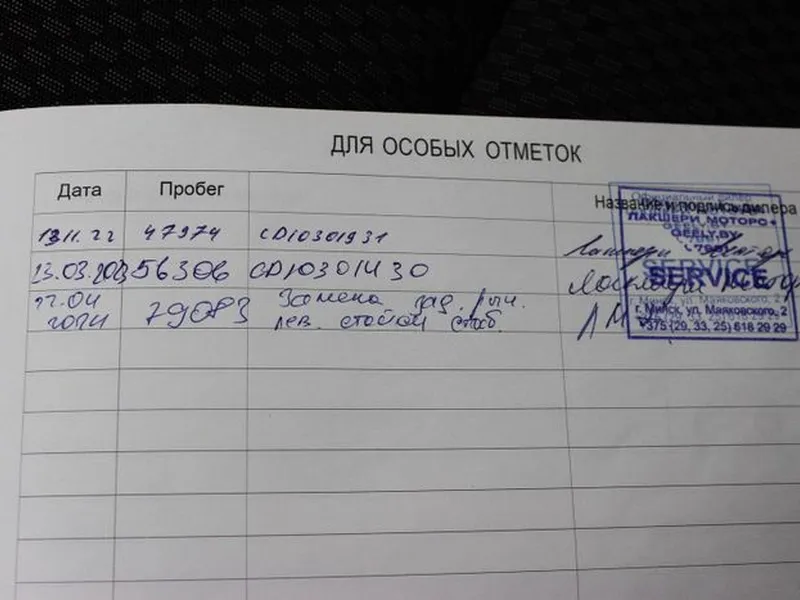 ДЛЯ ОСОБЫХ ОТМЕТОК
Дата Пробег Название и подпись дилера
13.11.22 47974 CD10301931
23.03.2023 56306 CD10301430
22.04 2024 79083 Замена зад. рыч.
лев. стойки стаб.
ЛАКШЕРИ МОТОРС
GEELY.BY
SERVICE
г. Минск, ул. Маяковского, 2
+375 (29, 33, 25) 618 29 29